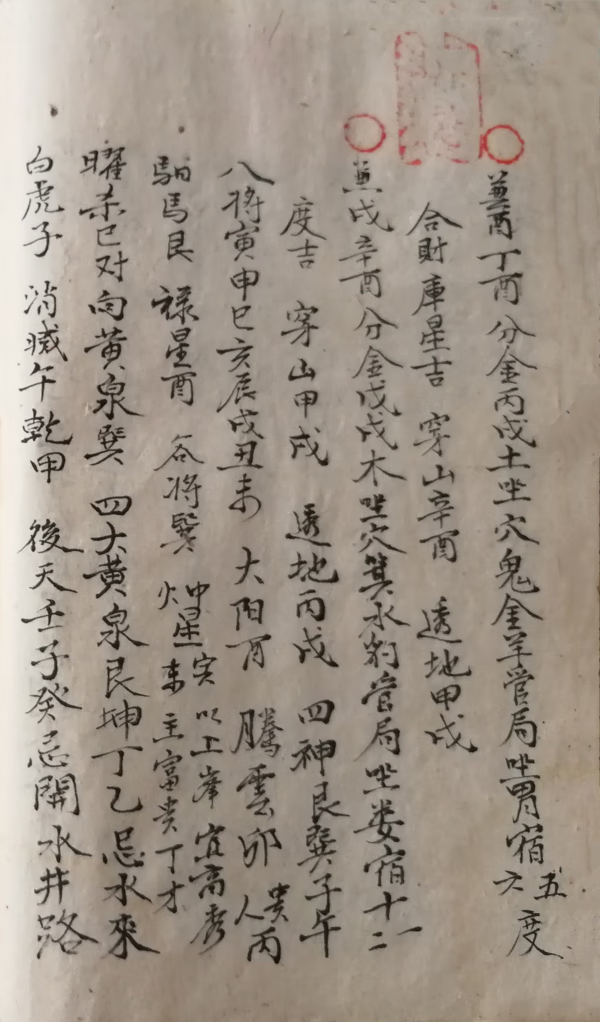 兼酉丁酉分金丙戌土坐穴鬼金羊管局坐胃宿五六度
合財庫星吉 穿山辛酉 透地甲戌
兼戌辛酉分金戊戌木坐穴箕水豹管局坐娄宿十一二
度吉 穿山甲戌 透地丙戌 四神艮巽子午
八将寅申巳亥辰戌丑未 大阳酉 騰雲卯 贵人丙
馹馬艮 禄星酉 合将巽 中星寅 以上峯宜高秀 主富贵丁才
曜杀巳对向黄泉巽 四大黄泉艮坤丁乙忌水來
白虎子 消滅午乾甲 後天壬子癸忌開水井路